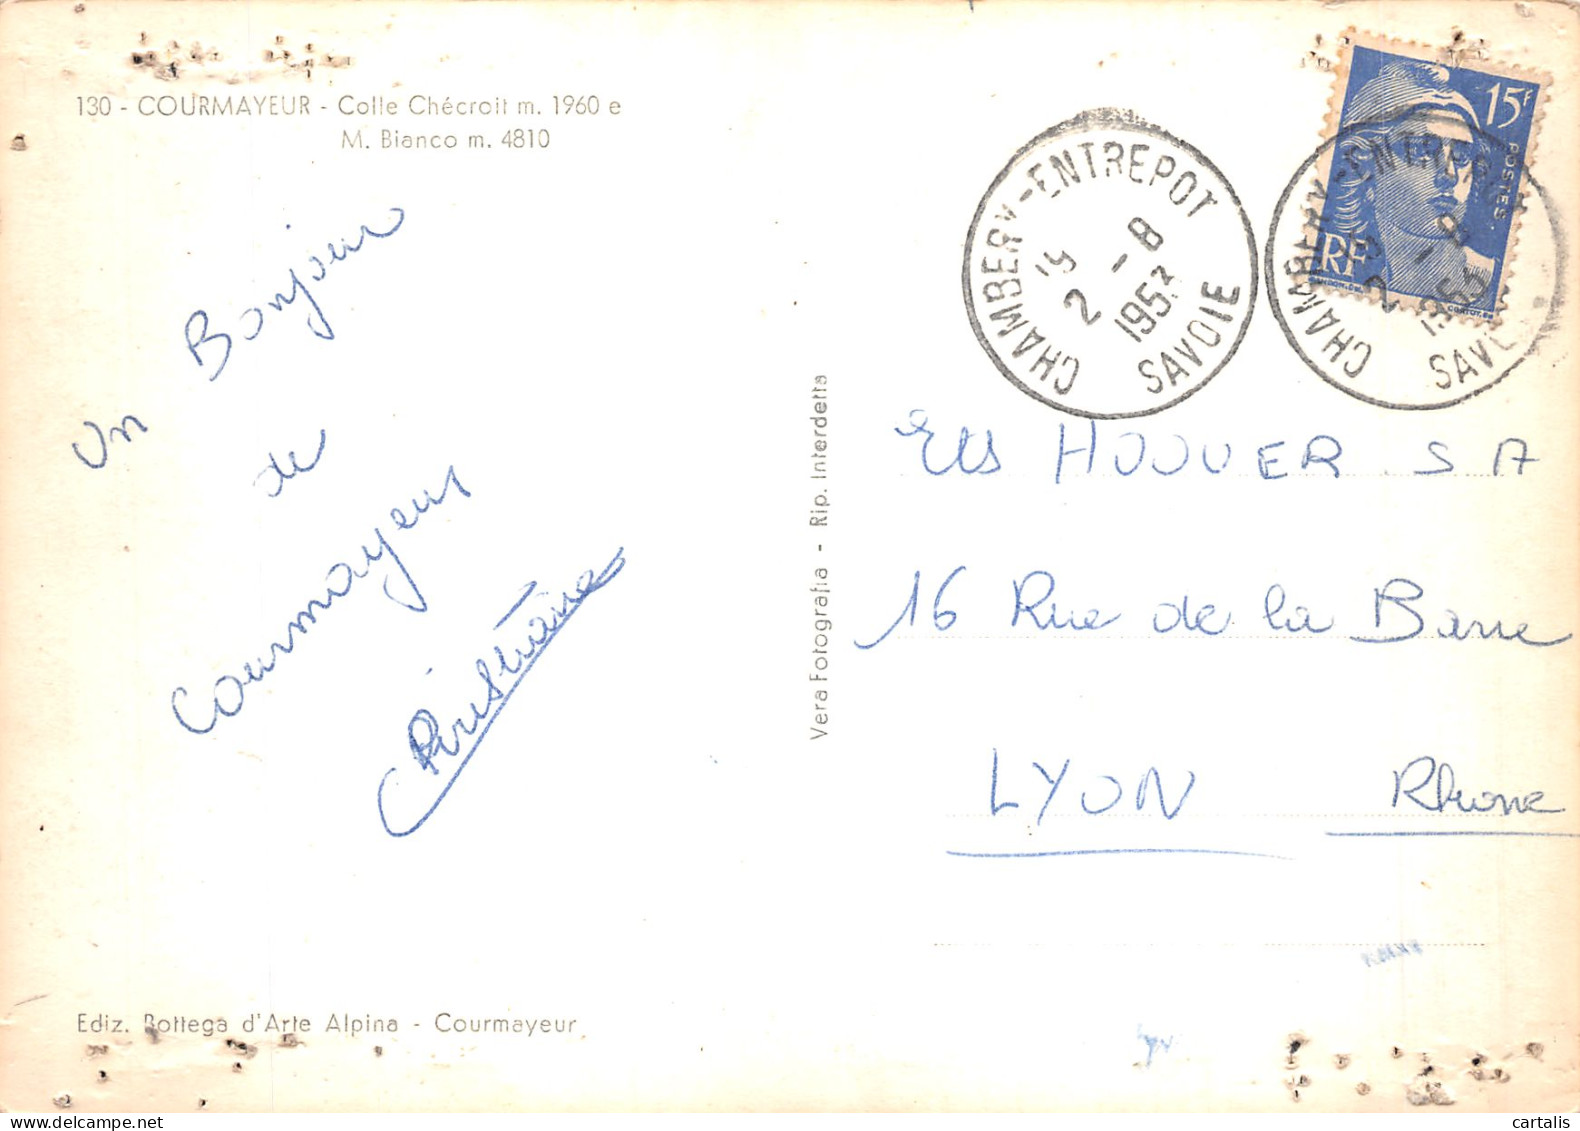 130 - COURMAYEUR - Colle Chécroit m. 1960 e
M. Bianco m. 4810
Un Bonjour
de
Courmayeur
Christiane
Ediz. Bottega d'Arte Alpina - Courmayeur
Vera Fotografia - Rip. Interdetta
15F
POSTES
RF
CHAMBERY-ENTREPOT
2 -8
1953
SAVOIE
CHAMBERY-ENTREPOT
Ets HOOVER S A
16 Rue de la Barre
LYON Rhone
cartalis